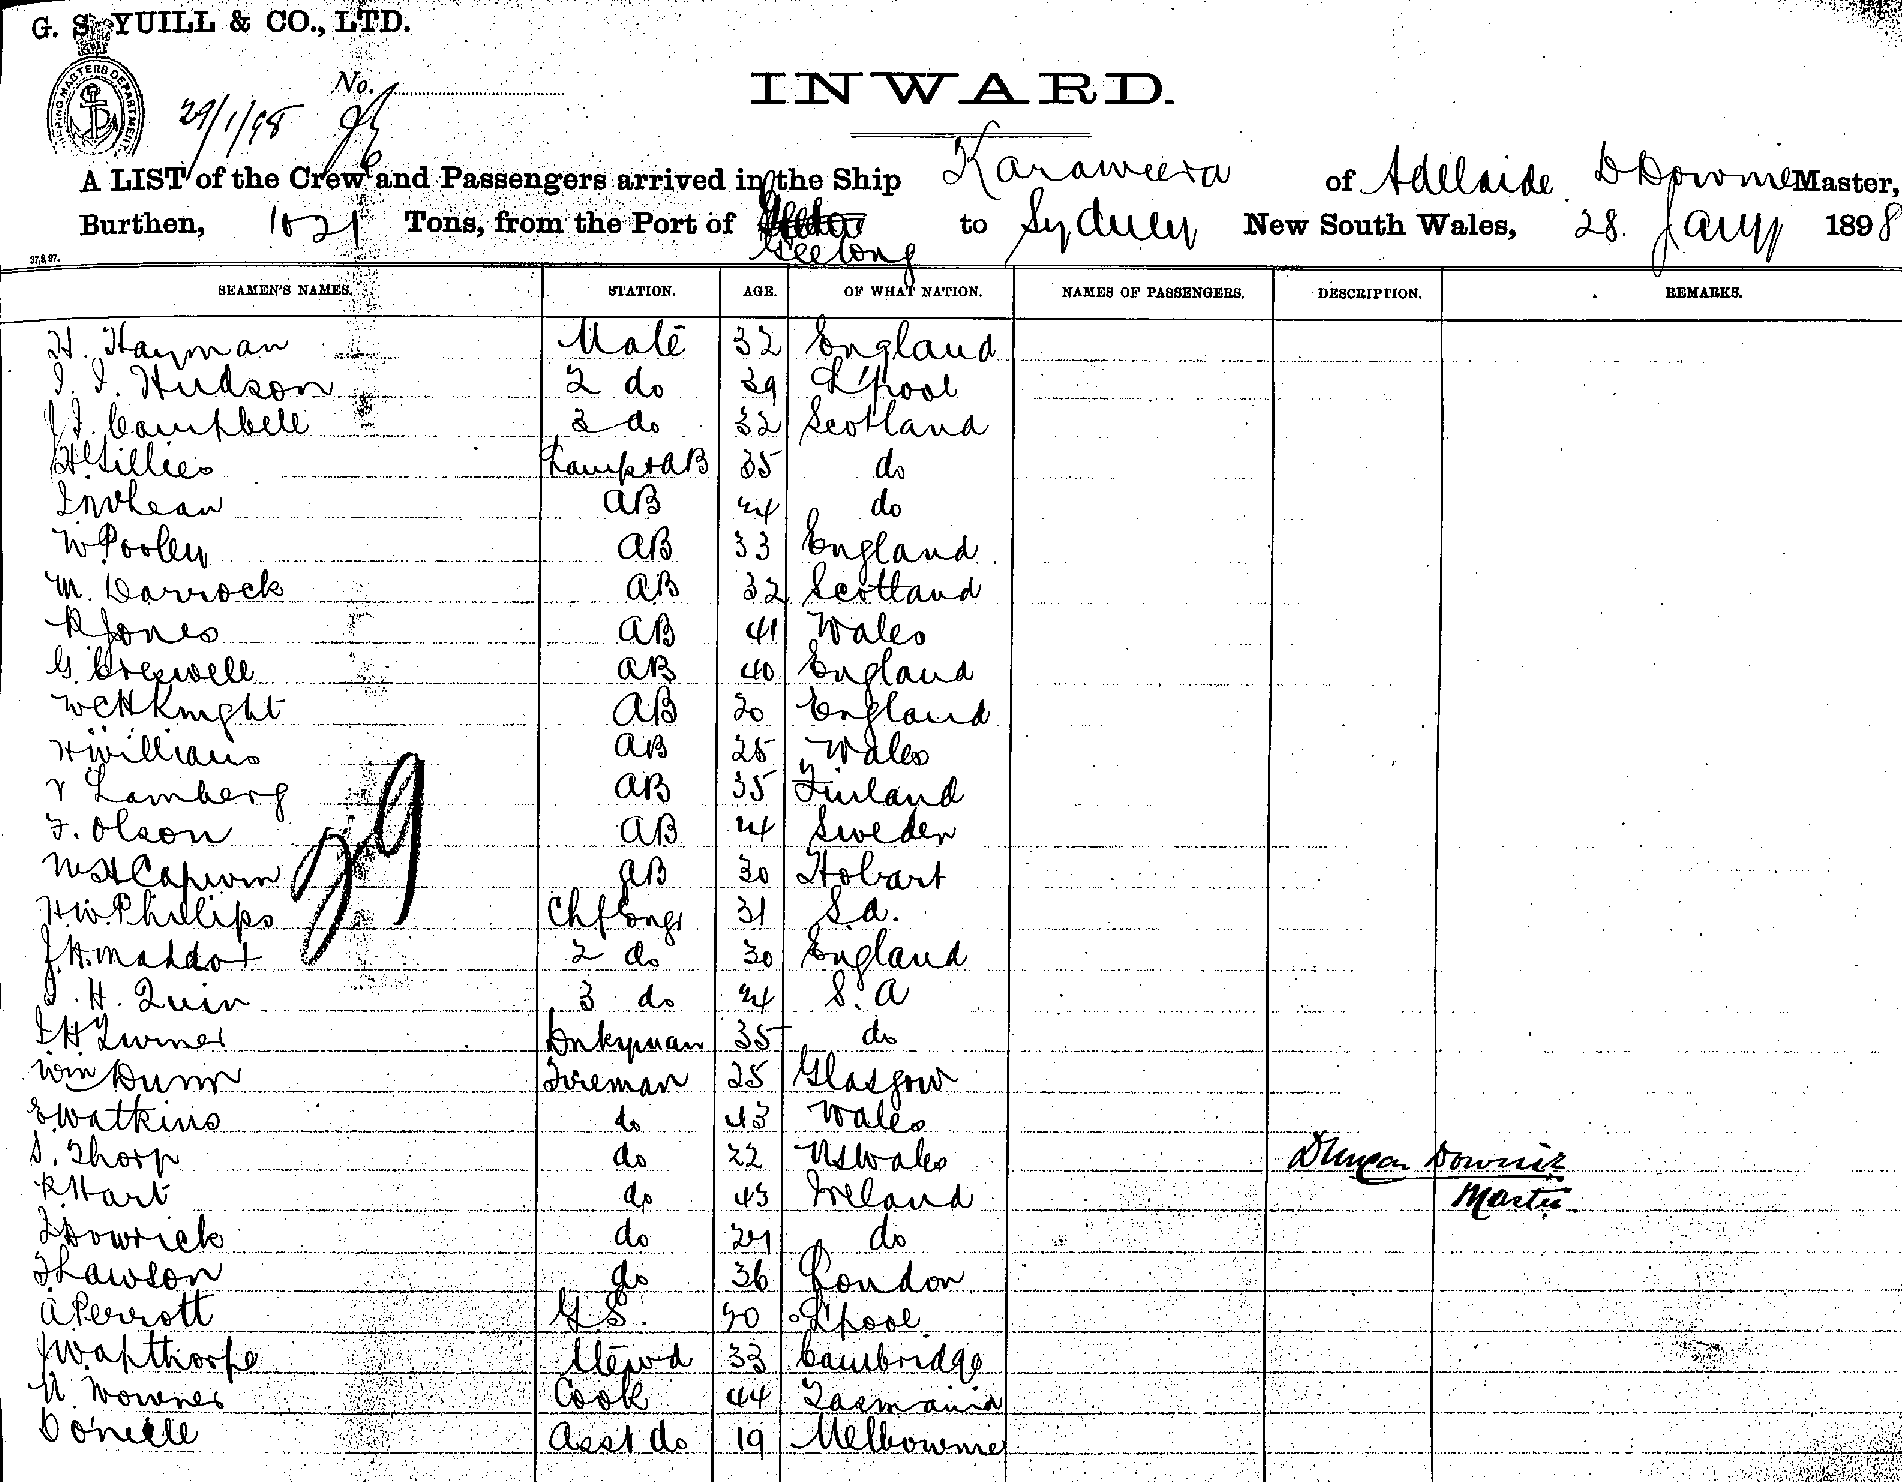 G. S. YUILL & CO., LTD.
No.
29/1/98
INWARD.
A LIST of the Crew and Passengers arrived in the Ship Karaweera of Adelaide D Downie Master,
Burthen, 1021 Tons, from the Port of Geelong to Sydney New South Wales, 28. Jany 1898
SEAMEN'S NAMES. STATION. AGE. OF WHAT NATION. NAMES OF PASSENGERS. DESCRIPTION. REMARKS.
H. Hayman Mate 32 England
Hudson 2 do 39 L'pool
J. Campbell 3 do 32 Scotland
Gillies Lamps & AB 35 do
AB 24 do
W Pooley AB 33 England
M. Darrock AB 32 Scotland
R Jones AB 41 Wales
G. Creswell AB 40 England
W C H Knight AB 20 England
H Williams AB 25 Wales
Lamberg AB 35 Finland
F. Olson AB 24 Sweden
AB 30 Hobart
H W Phillips Chf Engr 31 S.A.
J. H. Maddox 2 do 30 England
H. Quin 3 do 24 S. A
H Turner Dnkyman 35 do
Wm Dunn Fireman 25 Glasgow
E Watkins do 43 Wales
S. Thorp do 22 N S Wales
R Hart do 43 Ireland
Dowrick do 29 do
Lawson do 36 London
A Perrott G S. 20 L'pool
J W Apthorpe Stewd 33 Cambridge
Cook 44 Tasmania
O'Neille Asst do 19 Melbourne
29
Duncan Downie
Master